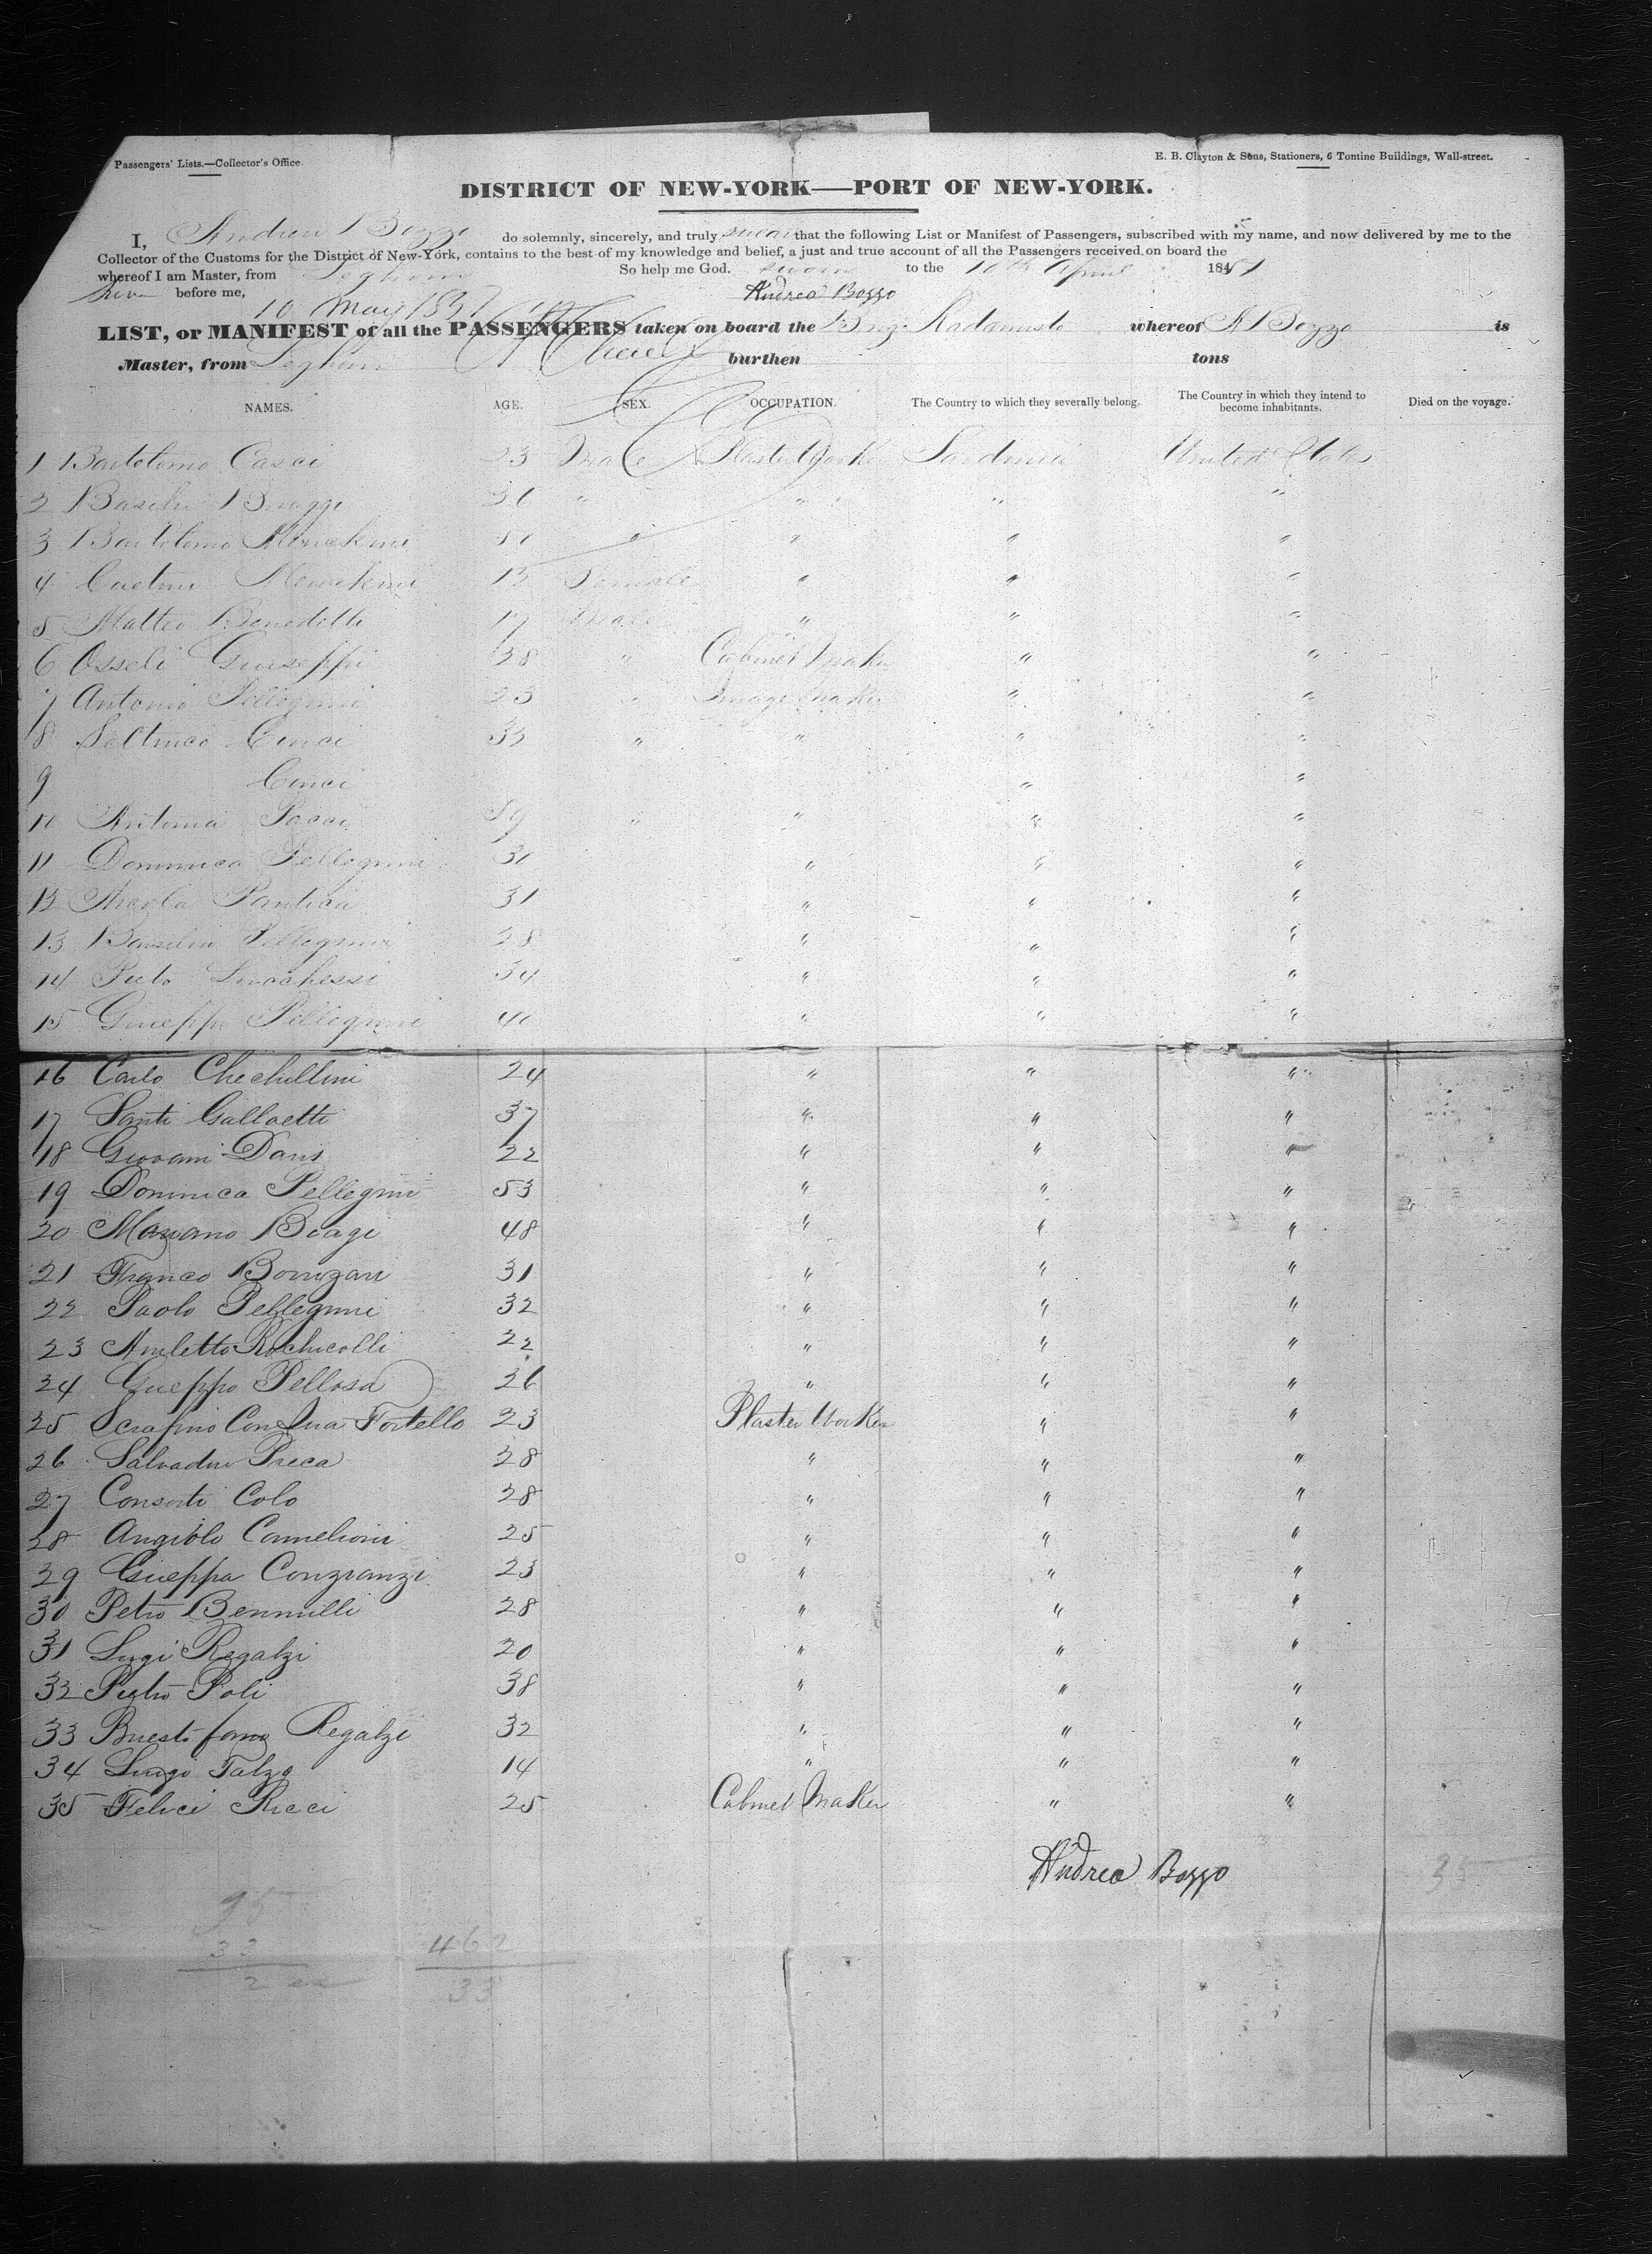 Passengers' Lists.—Collector's Office.
E. B. Clayton & Sons, Stationers, 6 Tontine Buildings, Wall-street.
DISTRICT OF NEW-YORK—PORT OF NEW-YORK.
I, Andrea Bozzo do solemnly, sincerely, and truly swear that the following List or Manifest of Passengers, subscribed with my name, and now delivered by me to the
Collector of the Customs for the District of New-York, contains to the best of my knowledge and belief, a just and true account of all the Passengers received on board the
whereof I am Master, from Leghorn So help me God. sworn to the 10th April 1851
before me, Andrea Bozzo
10 May 185
LIST, or MANIFEST of all the PASSENGERS taken on board the Brig Radamisto whereof A Bozzo is
Master, from Leghorn burthen tons
NAMES. AGE. SEX. OCCUPATION. The Country to which they severally belong. The Country in which they intend to become inhabitants. Died on the voyage.
1 Bartolomo Casci 23 Male Plaster Worker Sardinia United States
2 Basilio 36 " " " "
3 Bartolomo " " " "
4 Female " " "
5 Matteo Benedetti 17 Male " " "
6 Osseli Giuseppi 38 " Cabinet Maker " "
7 Antonio Pellegrini 23 " Image Maker " "
8 Cinci 33 " " " "
9 Cinci " "
10 Antonia Pacci 59 " " " "
11 Dominica Pellegrini 30 " " "
12 Nicola Pantica 31 " " "
13 Basilio Pellegrini 28 " " "
14 Lucchessi 34 " " "
15 Giueppe Pellegrini 40 " " "
16 Carlo Chechillini 24 " " "
17 Santi Gallaetti 37 " " "
18 Giovani Daris 22 " " "
19 Dominica Pellegrini 53 " " "
20 Biagi 48 " " "
21 Franco 31 " " "
22 Paolo Pellegrini 32 " " "
23 Amletto Rochicolli 22 " " "
24 Giueppo Pellosa 26 " " "
25 Serafino Fortello 23 Plaster Worker " "
26 Salvadore Preca 28 " " "
27 Consorti Colo 28 " " "
28 Angiolo Camelioni 25 " " "
29 Giueppa Conzianzi 23 " " "
30 Petro Bennilli 28 " " "
31 Luigi Regalzi 20 " " "
32 Pietro Poli 38 " " "
33 Regalzi 32 " " "
34 Luigi Talzo 14 " " "
35 Felici Ricci 25 Cabinet Maker " "
Andrea Bozzo
35
35
33
2
462
33